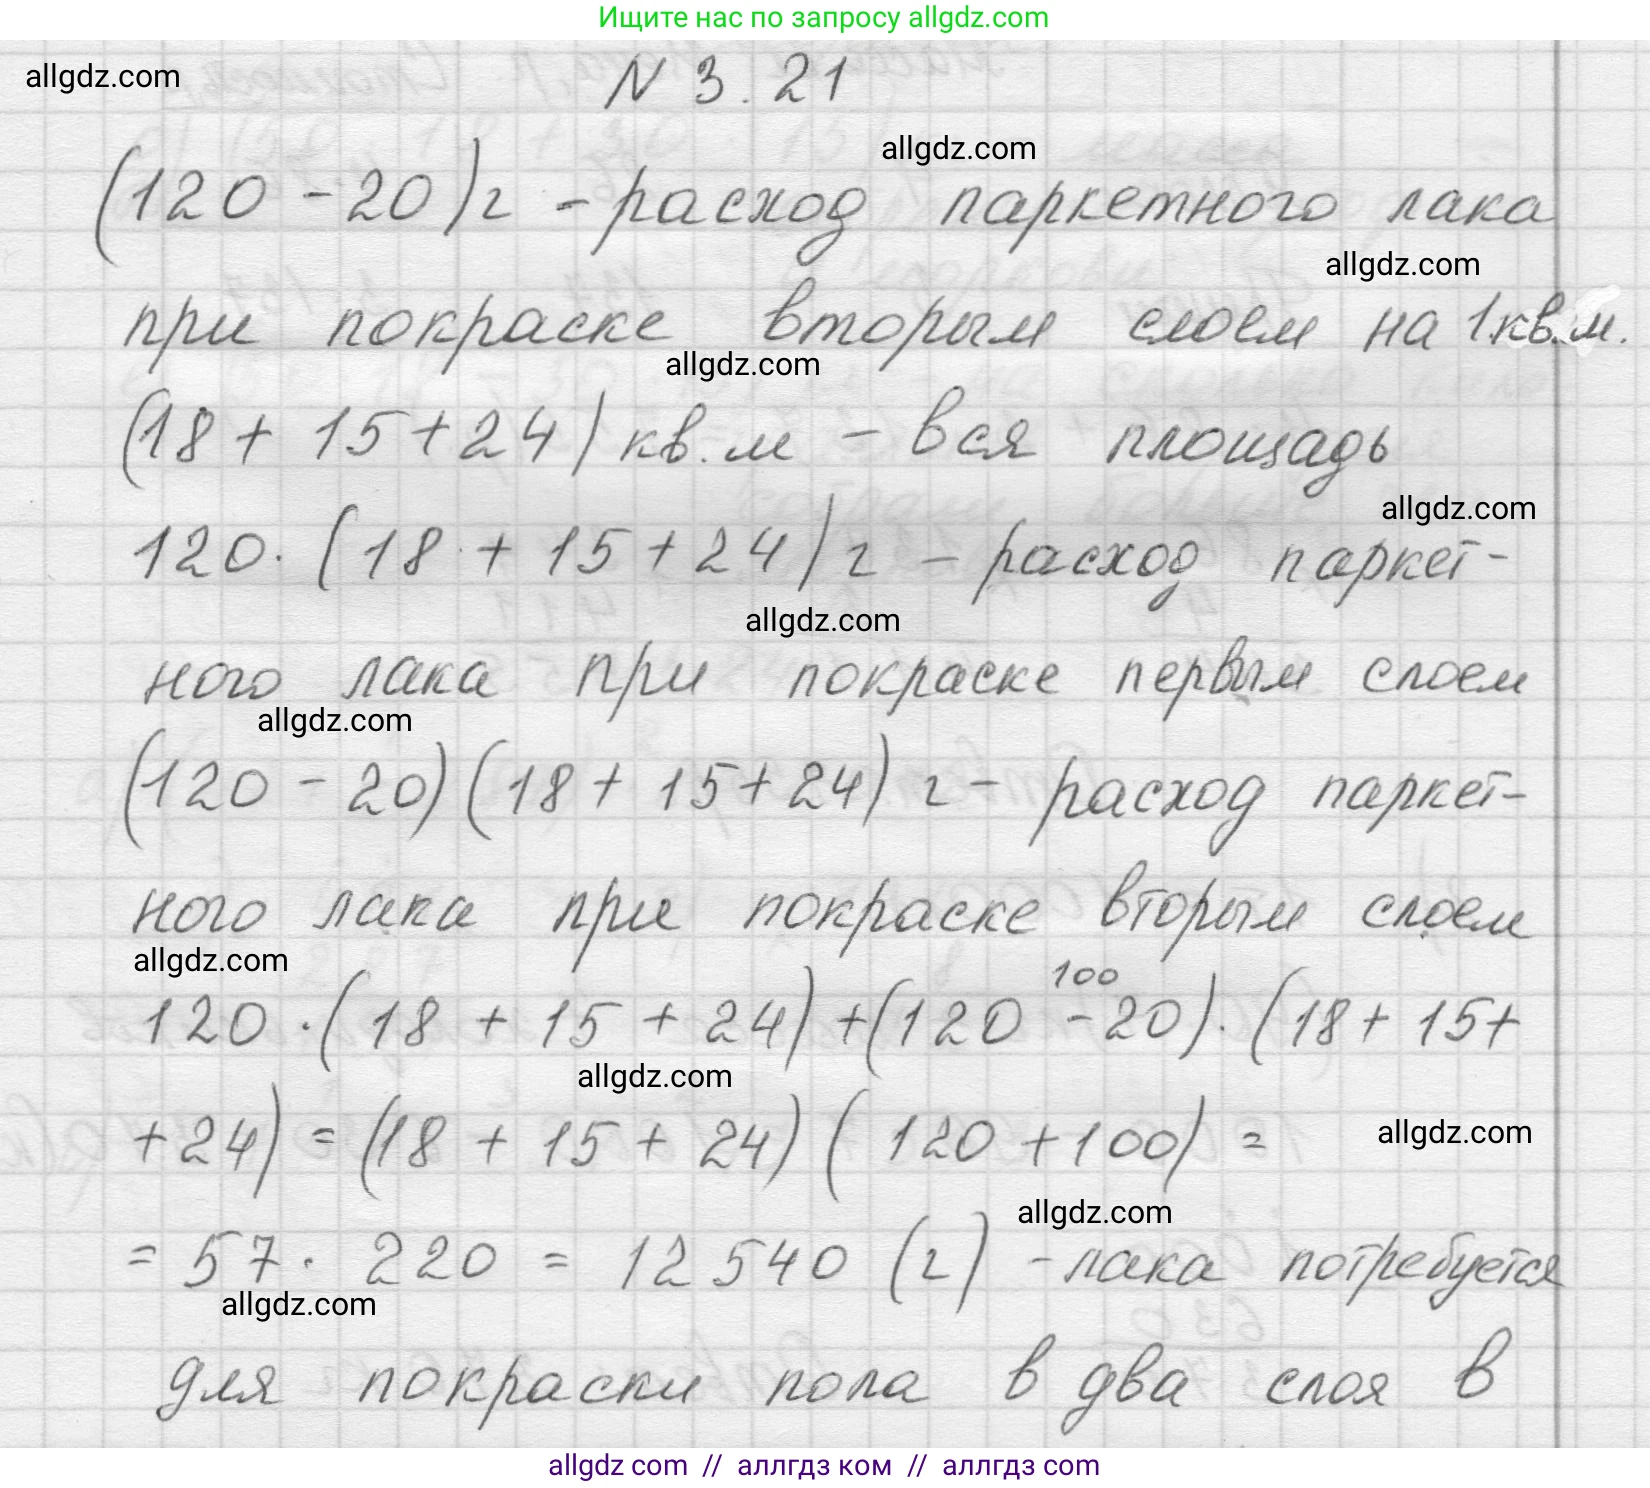 Ищите нас по запросу allgdz.com
allgdz.com
N 3.21
allgdz.com
(120 - 20) г - расход паркетного лака
allgdz.com
при покраске вторым слоем на 1 кв.м.
allgdz.com
(18 + 15 + 24) кв.м - вся площадь
allgdz.com
120 · (18 + 15 + 24) г - расход паркет-
allgdz.com
ного лака при покраске первым слоем
allgdz.com
(120 - 20) (18 + 15 + 24) г - расход паркет-
ного лака при покраске вторым слоем
allgdz.com
100
120 · (18 + 15 + 24) + (120 - 20) · (18 + 15 +
allgdz.com
+ 24) = (18 + 15 + 24) (120 + 100) =
allgdz.com
allgdz.com
= 57 · 220 = 12 540 (г) - лака потребуется
allgdz.com
для покраски пола в два слоя в
allgdz com // аллгдз ком // аллгдз com